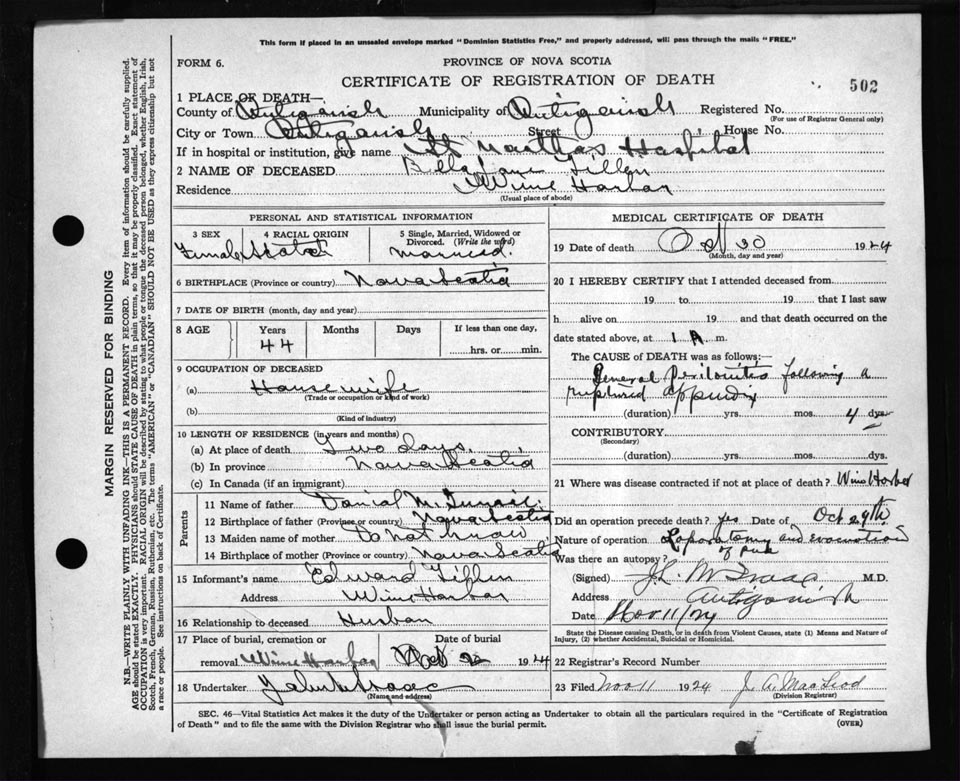 This form if placed in an unsealed envelope marked "Dominion Statistics Free," and properly addressed, will pass through the mails "FREE."
FORM 6.
PROVINCE OF NOVA SCOTIA
CERTIFICATE OF REGISTRATION OF DEATH
502
1 PLACE OF DEATH—
County of Antigonish Municipality of Antigonish Registered No.
(For use of Registrar General only)
City or Town Antigonish Street House No.
If in hospital or institution, give name St Martha's Hospital
2 NAME OF DECEASED
Residence Wine Harbor
(Usual place of abode)
PERSONAL AND STATISTICAL INFORMATION
3 SEX 4 RACIAL ORIGIN 5 Single, Married, Widowed or Divorced. (Write the word)
Female Scotch Married.
6 BIRTHPLACE (Province or country) Nova Scotia
7 DATE OF BIRTH (month, day and year)
8 AGE Years Months Days If less than one day,
44 hrs. or min.
9 OCCUPATION OF DECEASED
(a) House wife
(Trade or occupation or kind of work)
(b)
(Kind of industry)
10 LENGTH OF RESIDENCE (in years and months)
(a) At place of death Two days
(b) In province Nova Scotia
(c) In Canada (if an immigrant)
Parents
11 Name of father
12 Birthplace of father (Province or country) Nova Scotia
13 Maiden name of mother Do not know
14 Birthplace of mother (Province or country) Nova Scotia
15 Informant's name Edward
Address Wine Harbor
16 Relationship to deceased Husban
17 Place of burial, cremation or Date of burial
removal Wine Harbor 1924
18 Undertaker
(Name and address)
MEDICAL CERTIFICATE OF DEATH
19 Date of death Oct 30 1924
(Month, day and year)
20 I HEREBY CERTIFY that I attended deceased from
19 to 19 that I last saw
h alive on 19 and that death occurred on the
date stated above, at 1 A m.
The CAUSE of DEATH was as follows:—
General Peritonitis following a
ruptured appendix
(duration) yrs. mos. 4 dys.
CONTRIBUTORY
(Secondary)
(duration) yrs. mos. dys.
21 Where was disease contracted if not at place of death? Wine Harbor
Did an operation precede death? yes Date of Oct 29th
Nature of operation Laporatomy and evacuation
of pus
Was there an autopsy?
(Signed) M.D.
Address Antigonish
Date Nov 11/24
State the Disease causing Death, or in death from Violent Causes, state (1) Means and Nature of Injury, (2) whether Accidental, Suicidal or Homicidal.
22 Registrar's Record Number
23 Filed Nov 11 1924 J. A. MacLeod
(Division Registrar)
SEC. 46—Vital Statistics Act makes it the duty of the Undertaker or person acting as Undertaker to obtain all the particulars required in the "Certificate of Registration of Death" and to file the same with the Division Registrar who shall issue the burial permit.
(OVER)
MARGIN RESERVED FOR BINDING
N.B.—WRITE PLAINLY WITH UNFADING INK—THIS IS A PERMANENT RECORD. Every item of information should be carefully supplied.
AGE should be stated EXACTLY. PHYSICIANS should STATE CAUSE OF DEATH in plain terms, so that it may be properly classified. Exact statement of
OCCUPATION is very important. RACIAL ORIGIN will be described by stating to what people or tongue the deceased person belonged, whether English, Irish,
Scotch, French, German, Russian, Ruthenian, etc. The terms "AMERICAN" or "CANADIAN" SHOULD NOT BE USED as they express citizenship but not
a race or people. See instructions on back of Certificate.